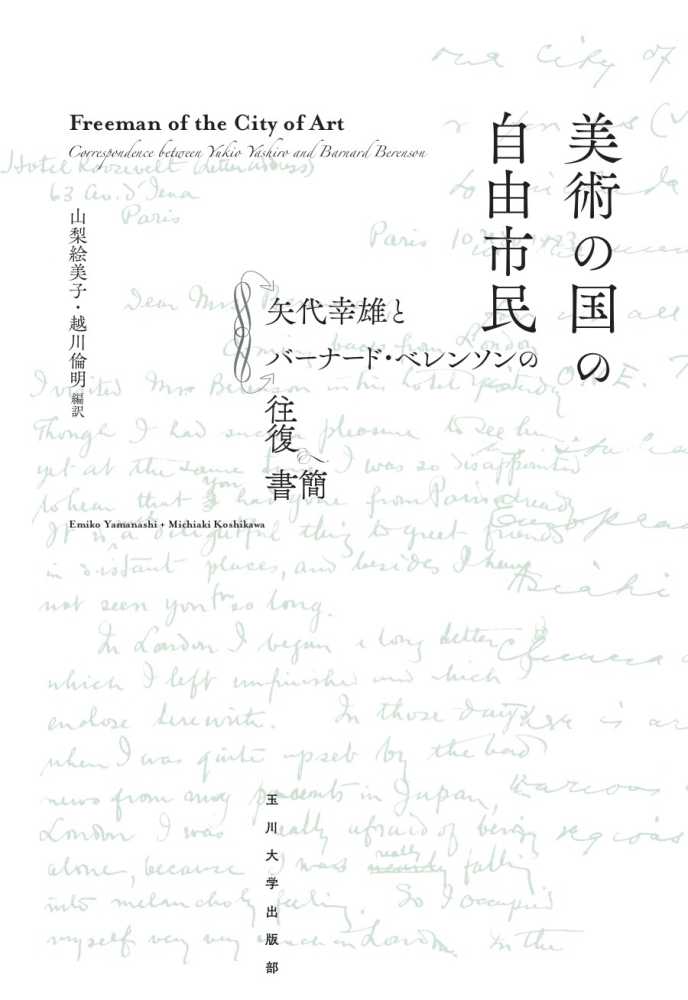 美術の国の
自由市民
矢代幸雄と
バーナード・ベレンソンの
往復
書簡
Freeman of the City of Art
Correspondence between Yukio Yashiro and Barnard Berenson
山梨絵美子・越川倫明 編訳
Emiko Yamanashi + Michiaki Koshikawa
玉川大学出版部
our City of
Hotel Roosevelt (letter address)
63 Av. d'Iena
Paris
Paris 10
Dear Mrs
I visited Mrs in his hotel yesterday
Though I had such pleasure to see him
yet at the same time I was so disappointed
to hear that you had gone from Paris already
It is a delightful thing to greet friends
in distant places, and besides I have
not seen you for so long.
In London I began a long letter
which I left unfinished and which I
enclose herewith. In those days
when I was quite upset by the bad
news from my parents in Japan,
London I was really afraid of being
alone, because I was really falling
into melancholy feeling. So I occupied
myself very very much in London. In the